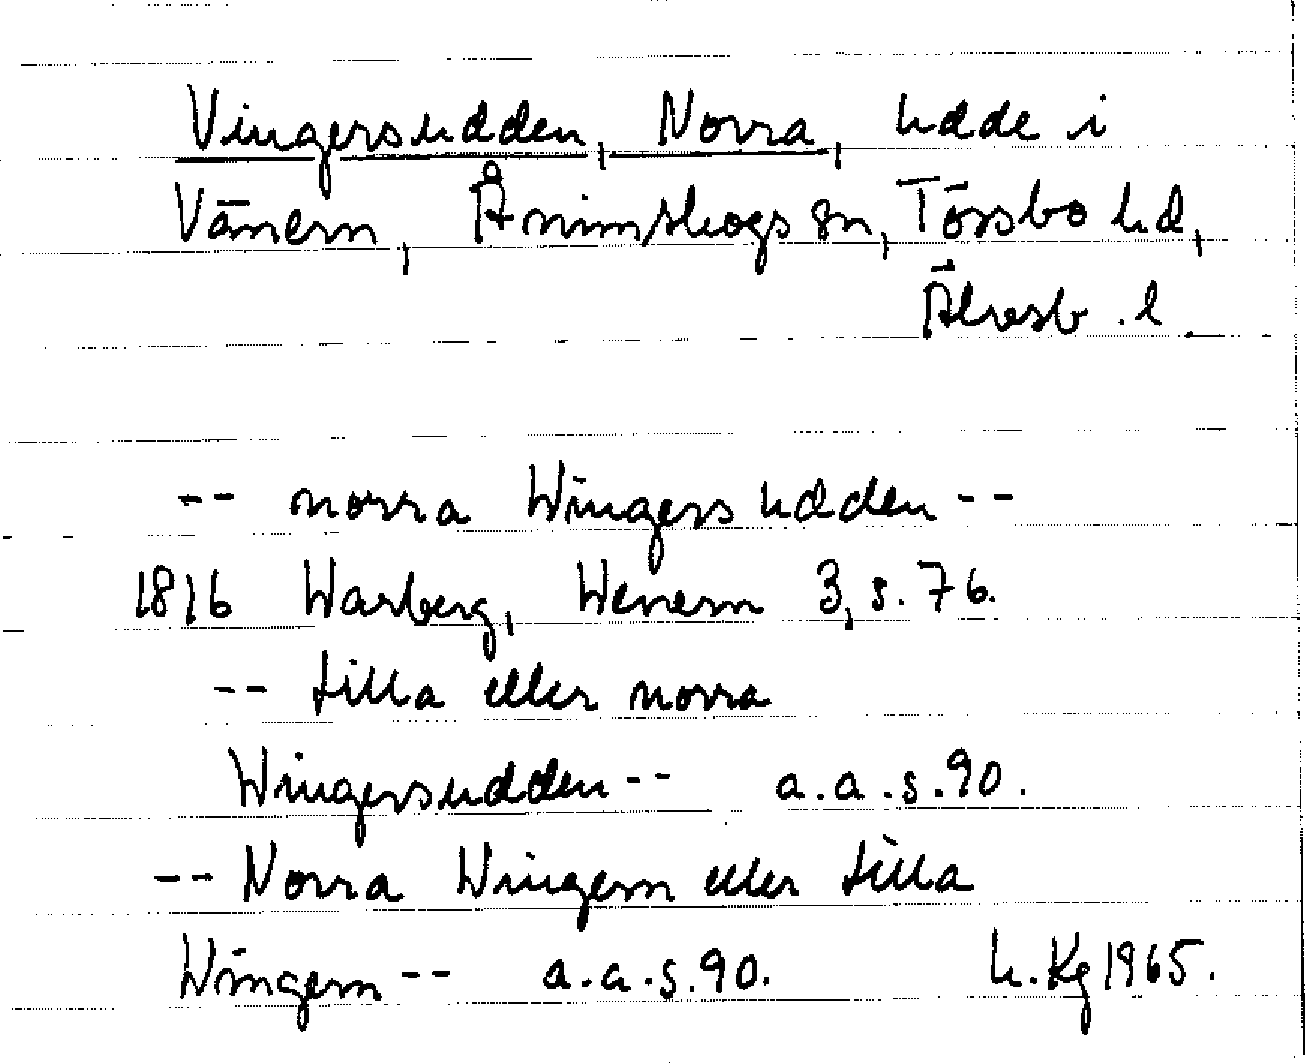 Vingersudden, Norra, udde i
Vänern, Ånimskogs sn, Tössbo hd,
Älvsb. l.
-- norra Wingersudden --
1816 Warberg, Wenern 3, s. 76.
-- lilla eller norra
Wingersudden -- a.a.s.90.
-- Norra Wingern eller lilla
Wingern -- a.a.s.90. Kg 1965.